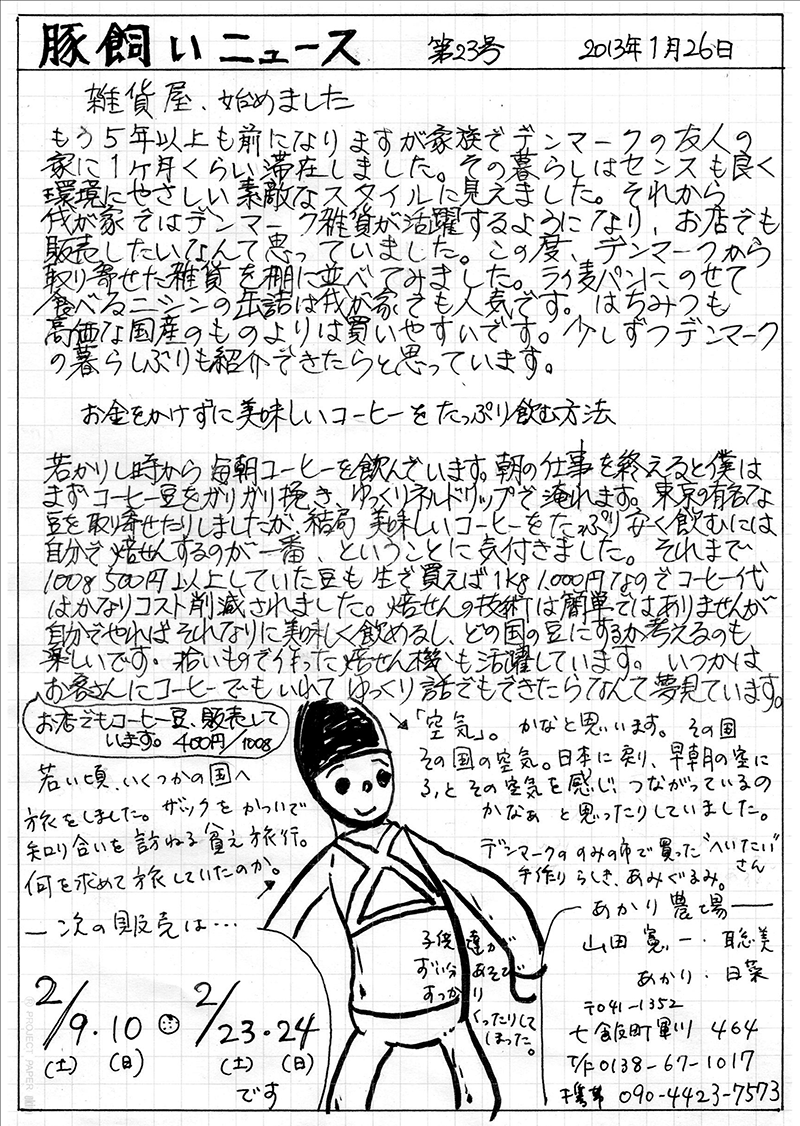 豚飼いニュース 第23号 2013年1月26日
雑貨屋、始めました
もう5年以上も前になりますが家族でデンマークの友人の
家に1ヶ月くらい滞在しました。その暮らしはセンスも良く
環境にやさしい素敵なスタイルに見えました。それから
我が家ではデンマーク雑貨が活躍するようになり、お店でも
販売したいなんて思っていました。この度、デンマークから
取り寄せた雑貨を棚に並べてみました。ライ麦パンにのせて
食べるニシンの缶詰は我が家でも人気です。はちみつも
高価な国産のものよりは買いやすいです。少しずつデンマーク
の暮らしぶりも紹介できたらと思っています。
お金をかけずに美味しいコーヒーをたっぷり飲む方法
若かりし時から毎朝コーヒーを飲んでいます。朝の仕事を終えると僕は
まずコーヒー豆をガリガリ挽き、ゆっくりネルドリップで淹れます。東京の有名な
豆を取り寄せたりしましたが、結局 美味しいコーヒーをたっぷり安く飲むには
自分で焙せんするのが一番、ということに気付きました。それまで
100g 500円以上していた豆も 生で買えば1kg 1.000円なのでコーヒー代
はかなりコスト削減されました。焙せんの技術は簡単ではありませんが
自分でやればそれなりに美味しく飲めるし、どの国の豆にするか考えるのも
楽しいです。拾いもので作った焙せん機も活躍しています。いつかは
お客さんにコーヒーでもいれてゆっくり話でもできたらなんて夢見ています。
お店でもコーヒー豆、販売して
います。400円/100g
若い頃、いくつかの国へ
旅をしました。ザックをかついで
知り合いを訪ねる貧乏旅行。
何を求めて旅していたのか。
「空気」。かなと思います。その国
その国の空気。日本に戻り、早朝の空に
ふとその空気を感じ、つながっているの
かなぁ と思ったりしていました。
デンマークののみの市で買った"へいたい"
さん
手作りらしき、あみぐるみ。
子供達が
ずい分あそび
すっかり
くったりして
しまった。
一次の販売は…
2/9・10 2/23・24
(土) (日) (土) (日)
です
あかり農場
山田憲一・聡美
あかり・日菜
〒041-1352
七飯町軍川 464
T/F 0138-67-1017
携帯 090-4423-7573
PROJECT PAPER